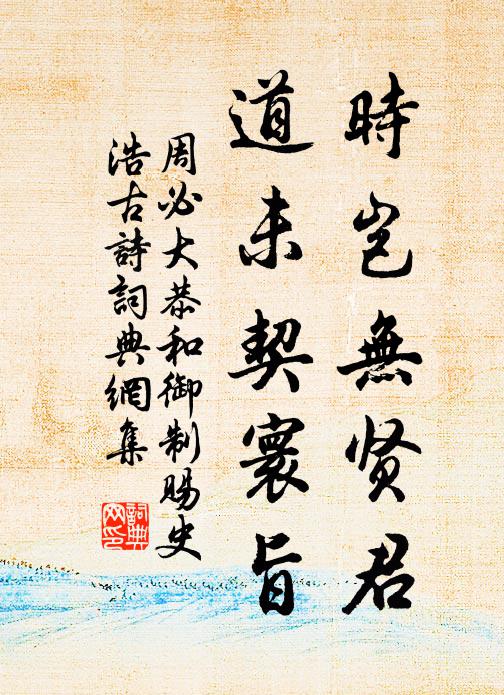 時豈無贤君
道未契寰旨
周必大恭和御制赐史
浩古詩詞典網集
詞典
网印